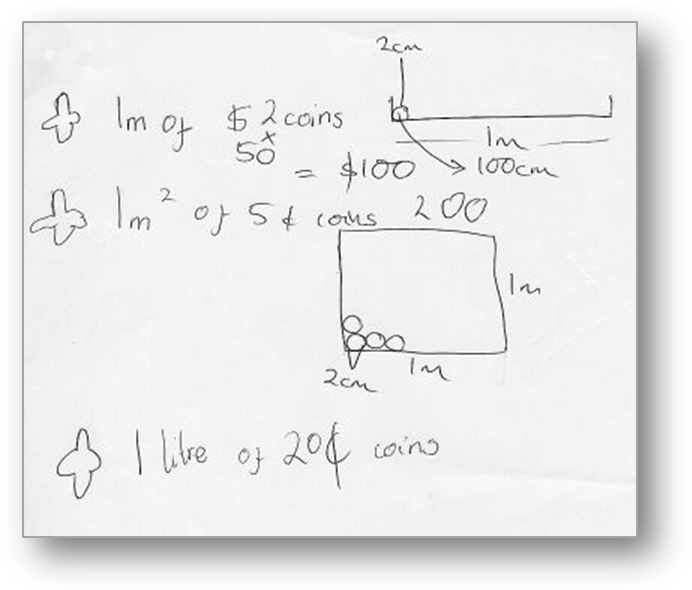 2cm
1m of $2 coins
x
50
= $100
1m
100cm
1m² of 5¢ coins 200
1m
2cm
1m
1 litre of 20¢ coins